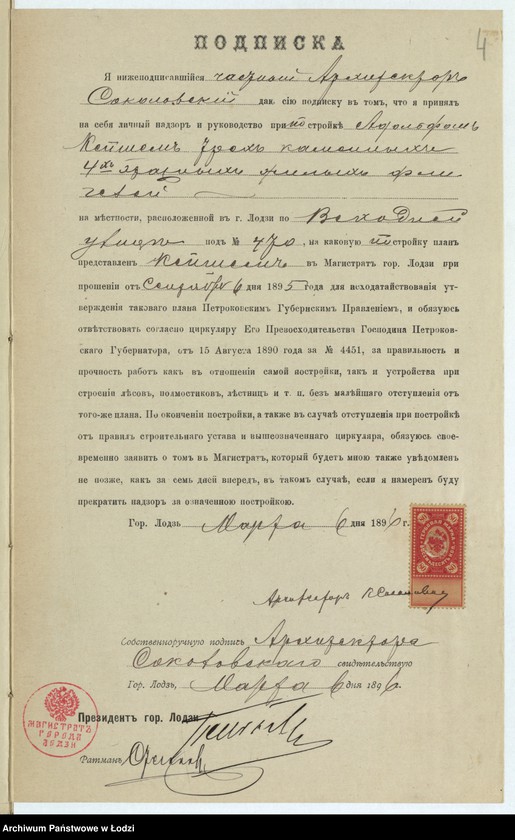 4
ПОДПИСКА
Я нижеподписавшійся частный Архитекторъ
Соколовскій даю сію подписку въ томъ, что я принялъ
на себя личный надзоръ и руководство при постройкѣ Адольфомъ
трехъ каменныхъ
4хъ этажныхъ жилыхъ фли
гелей
на мѣстности, расположенной въ г. Лодзи по Всходной
улицѣ подъ № 470, на каковую постройку планъ
представленъ въ Магистратъ гор. Лодзи при
прошеніи отъ Сентября 6 дня 1895 года для исходатайствованія ут-
вержденія таковаго плана Петроковскимъ Губернскимъ Правленіемъ, и обязуюсь
отвѣтствовать согласно циркуляру Его Превосходительства Господина Петроков-
скаго Губернатора, отъ 15 Августа 1890 года за № 4451, за правильность и
прочность работъ какъ въ отношеніи самой постройки, такъ и устройства при
строеніи лѣсовъ, полмостиковъ, лѣстницъ и т. п. безъ малѣйшаго отступленія отъ
того-же плана. По окончаніи постройки, а также въ случаѣ отступленія при постройкѣ
отъ правилъ строительнаго устава и вышеозначеннаго циркуляра, обязуюсь свое-
временно заявить о томъ въ Магистратъ, который будетъ мною также увѣдомленъ
не позже, какъ за семь дней впередъ, въ такомъ случаѣ, если я намеренъ буду
прекратить надзоръ за означенною постройкою.
Гор. Лодзь Марта 6 дня 1896 г.
Архитекторъ
Собственноручную подпись Архитектора
Соколовскаго свидѣтельствую
Гор. Лодзь, Марта 6 дня 1896.
Президентъ гор. Лодзи
МАГИСТРАТЪ
ГОРОДА
ЛОДЗИ
Ратманъ
Archiwum Państwowe w Łodzi